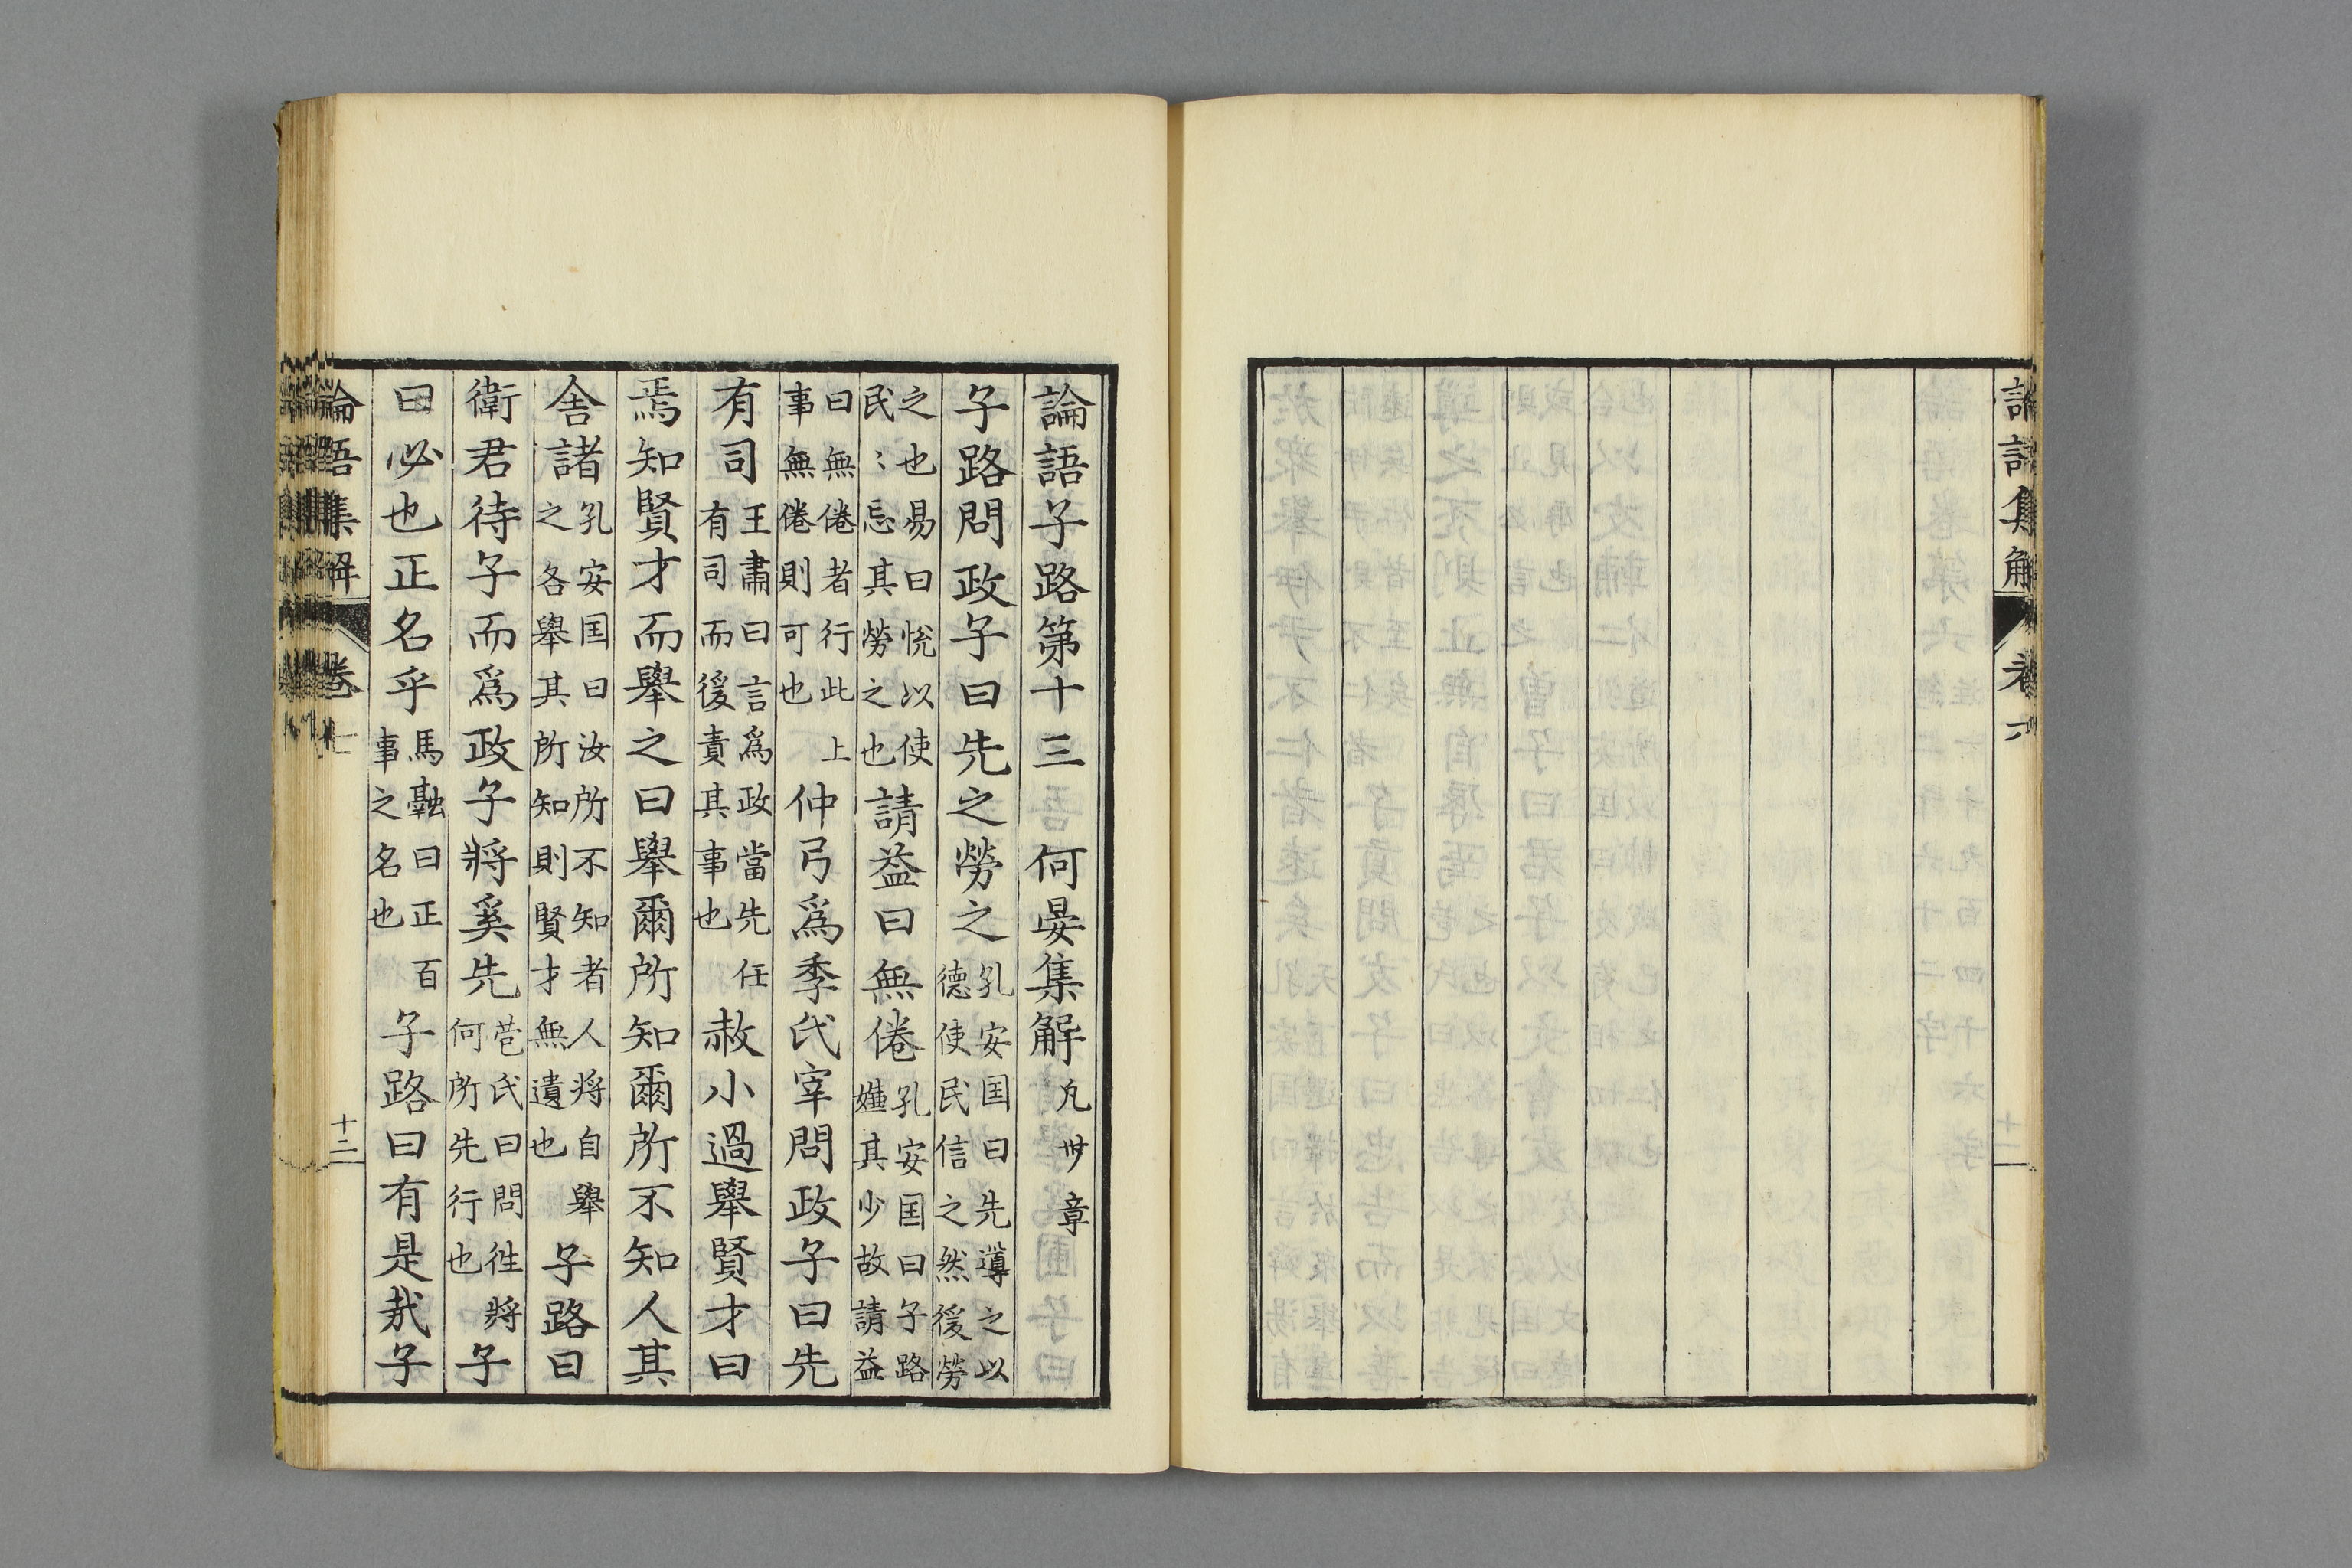 論語集解 卷六 十二
論語子路第十三 何晏集解 凡卅章
子路問政子曰先之勞之孔安囯曰先導之以德使民信之然後勞
之也易曰悅以使民〻忘其勞之也請益曰無倦孔安囯曰子路嫌其少故請益
曰無倦者行此上事無倦則可也仲弓爲季氏宰問政子曰先
有司王肅曰言爲政當先任有司而後責其事也赦小過舉賢才曰
焉知賢才而舉之曰舉爾所知爾所不知人其
舍諸孔安囯曰汝所不知者人將自舉之各舉其所知則賢才無遺也子路曰
衛君待子而爲政子將奚先苞氏曰問徃將何所先行也子
曰必也正名乎馬融曰正百事之名也子路曰有是哉子
論語集解 卷七 十二